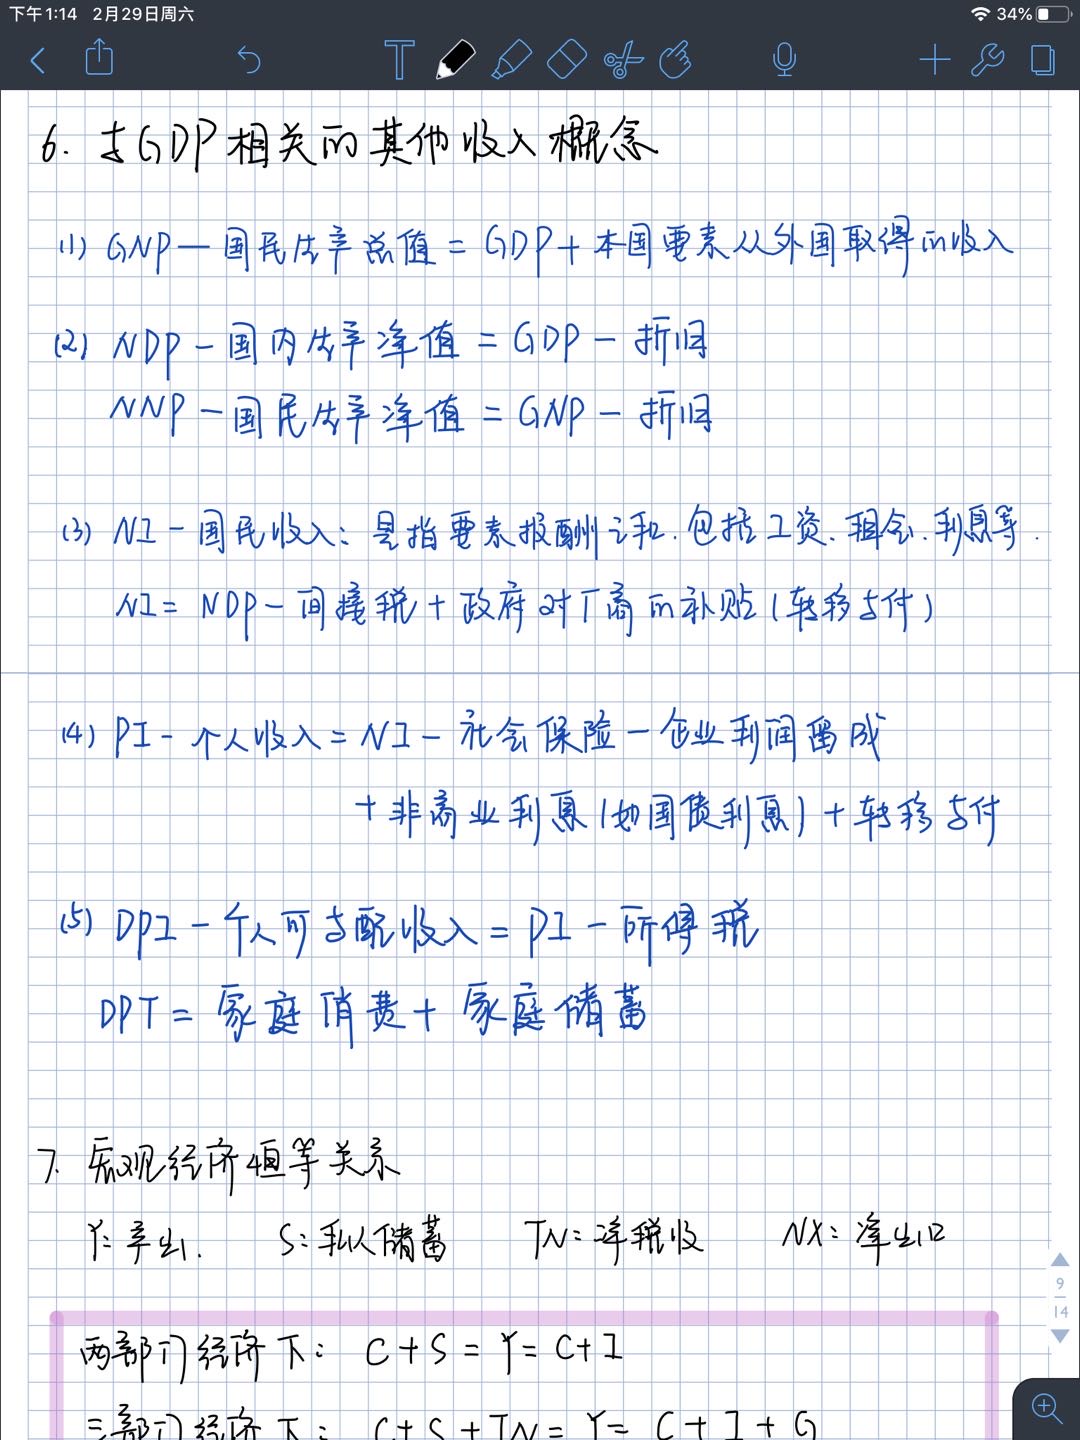 下午1:14 2月29日周六
34%
6. 与GDP相关的其他收入概念
(1) GNP—国民生产总值 = GDP+本国要素从外国取得的收入
(2) NDP－国内生产净值 = GDP－折旧
NNP－国民生产净值 = GNP－折旧
(3) NI－国民收入：是指要素报酬之和.包括工资、租金、利息等.
NI = NDP－间接税＋政府对厂商的补贴(转移支付)
(4) PI－个人收入 = NI－社会保险－企业利润留成
＋非商业利息(如国债利息)＋转移支付
(5) DPI－个人可支配收入 = PI－所得税
DPT = 家庭消费＋家庭储蓄
7. 宏观经济恒等关系
Y: 产出. S: 私人储蓄 TN: 净税收 NX: 净出口
两部门经济下： C+S = Y = C+I
三部门经济下： C+S+TN = Y = C+I+G
9
14